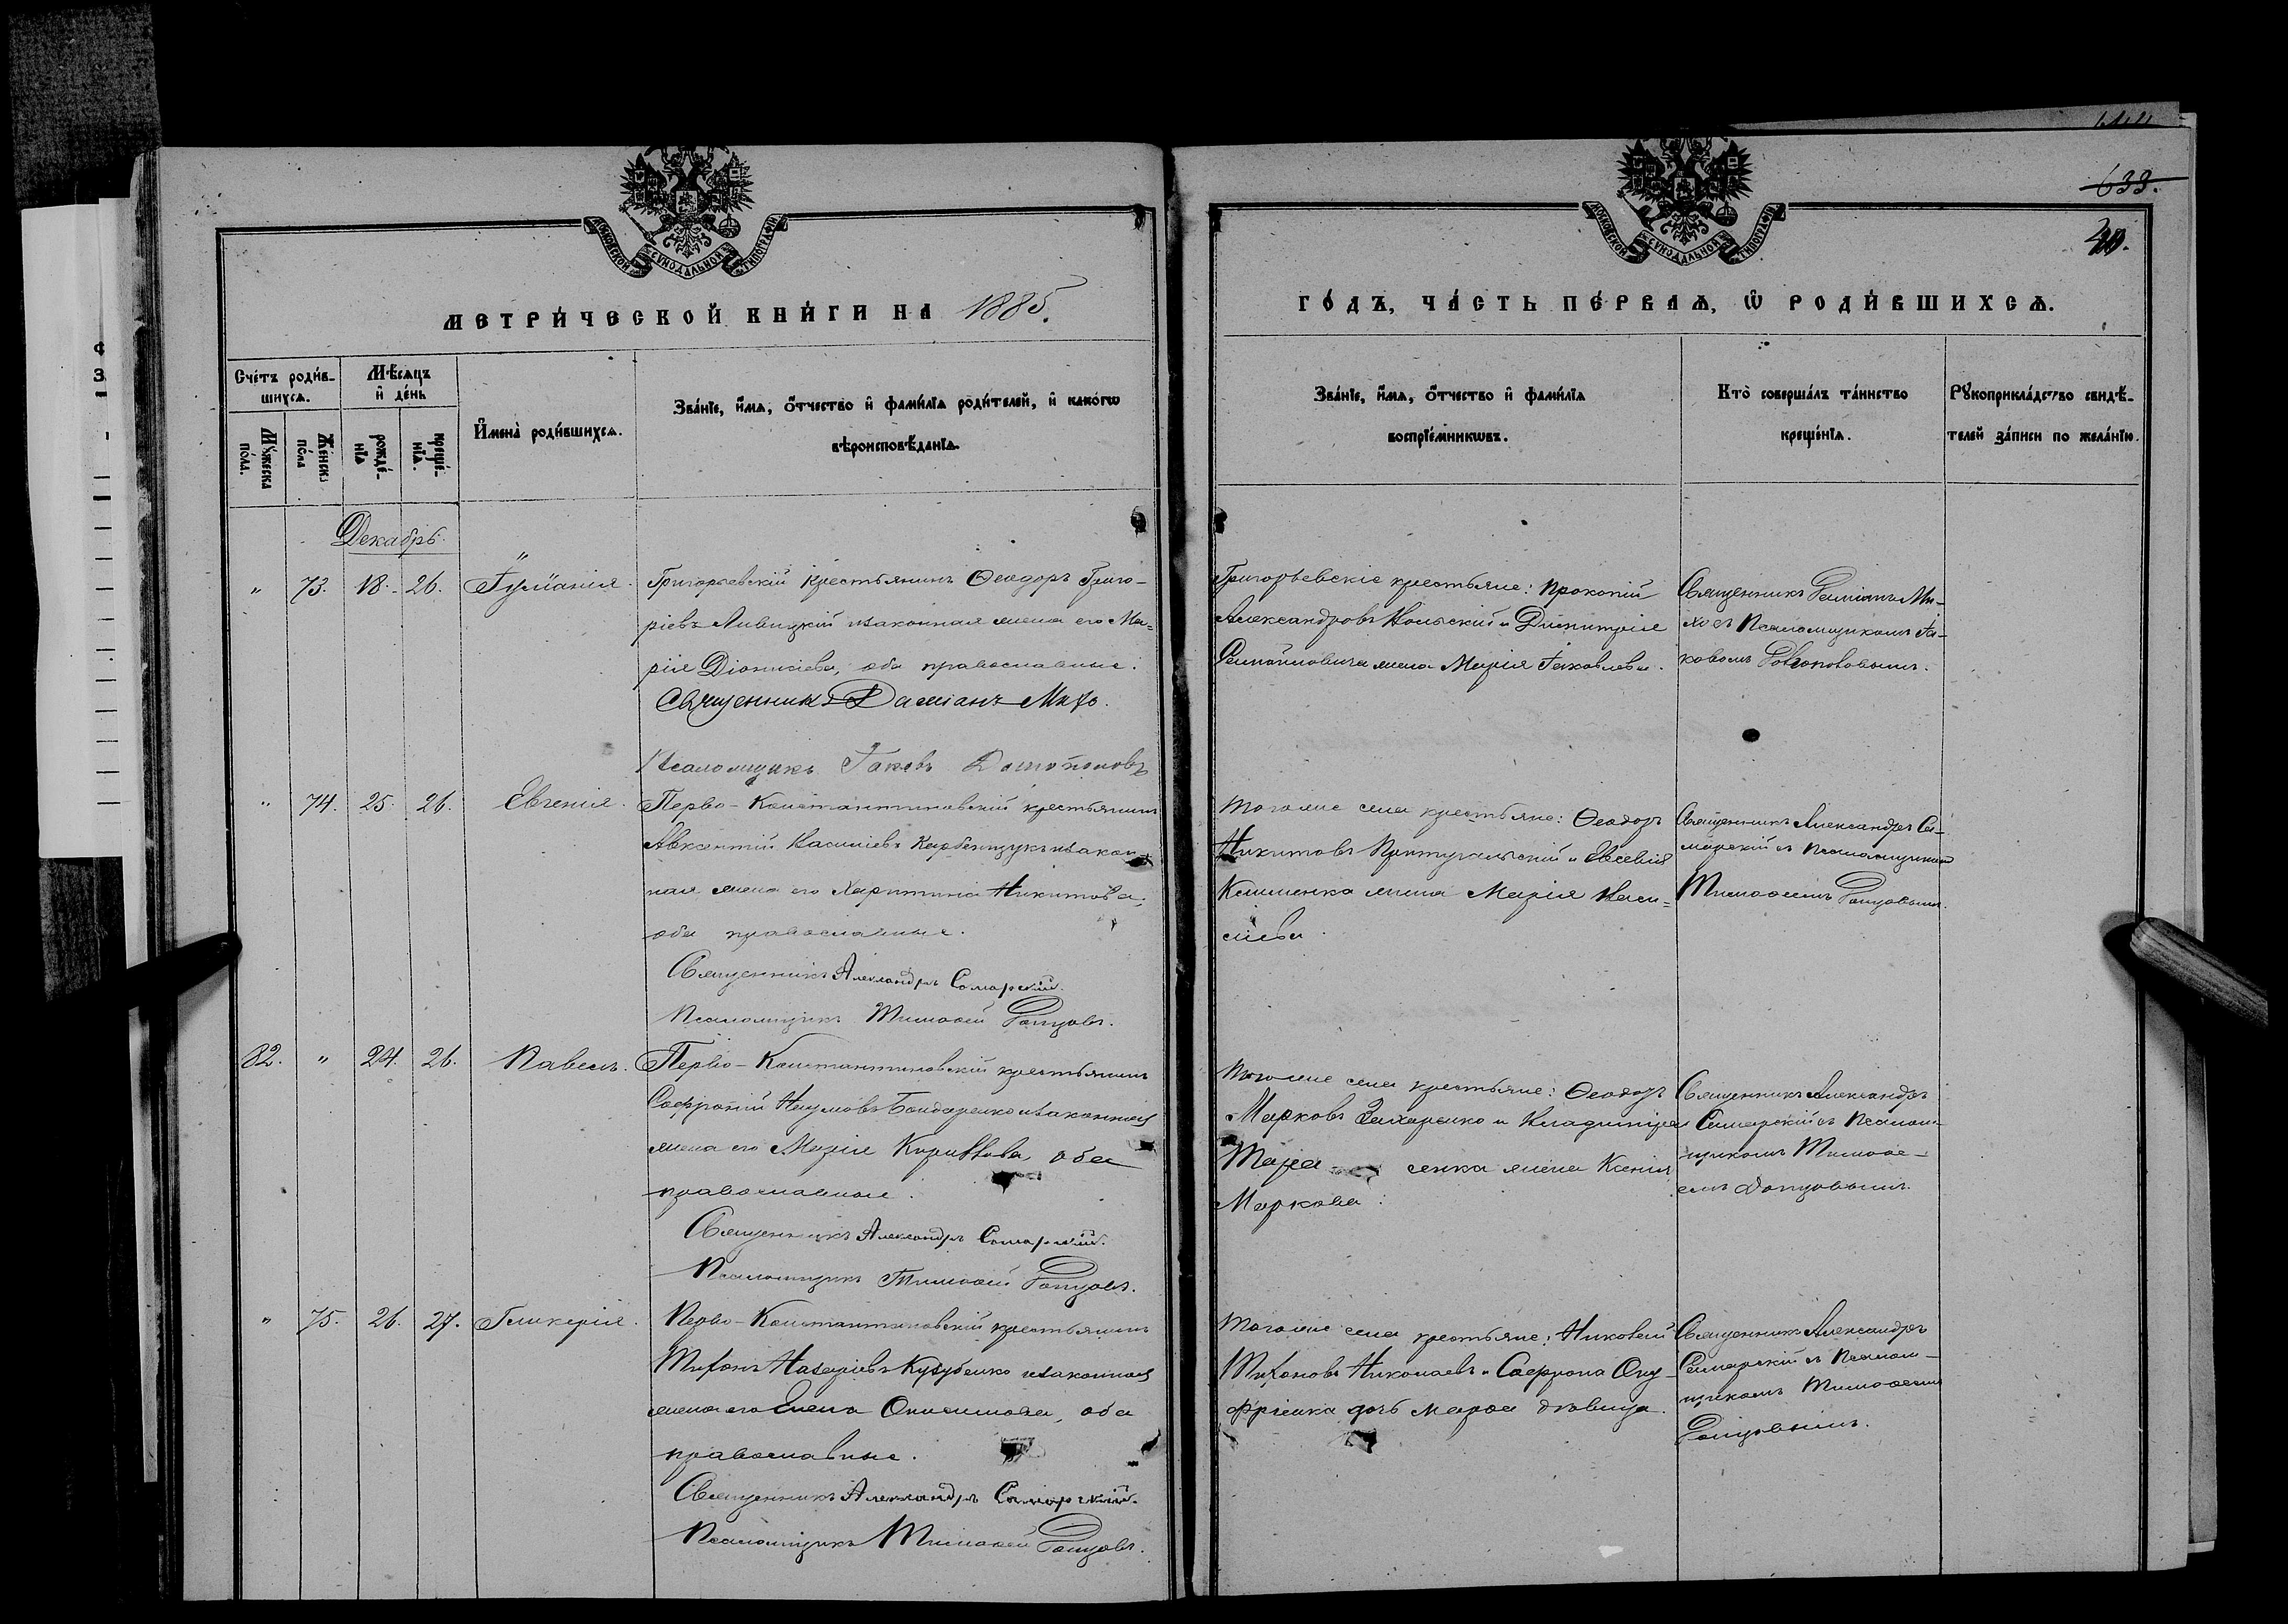 633.
МОСКОВСКОЙ СУНОДАЛЬНОЙ ТИПОГРАФІИ
МОСКОВСКОЙ СУНОДАЛЬНОЙ ТИПОГРАФІИ
МЕТРИ́ЧЕСКОЙ КНИ́ГИ НА 1885.
ГО́ДЪ, ЧА́СТЬ ПЕ́РВАѦ, Ѽ РОДИ́ВШИХСѦ.
Сче́тъ роди́в-
шихсѧ.
Мꙋ́жеска
по́ла.
Же́нска
по́ла
Мѣ́сѧцъ
и҆ де́нь
рожде́-
нїѧ
креще́-
нїѧ.
И҆мена̀ роди́вшихсѧ.
Зва́нїе, и҆́мѧ, ѻ҆́тчество и҆ фами́лїѧ роди́телей, и҆ како́гѡ
вѣроисповѣ́данїѧ.
Зва́нїе, и҆́мѧ, ѻ҆́тчество и҆ фами́лїѧ
воспрїе́мникѡвъ.
Кто̀ соверша́лъ та́инство
креще́нїѧ.
Рꙋкоприкла́дство свидѣ́-
телей за́писи по жела́нїю.
Декабрь.
" 73. 18. 26. Іуліанія.
Григорьевскій крестьянинъ Ѳеодоръ Григо-
ріевъ Ливицкій и законная жена его Ма-
рія Діонисіева, оба православные.
Священникъ Даміанъ Михо.
Псаломщикъ Іаковъ
Григорьевскіе крестьяне: Прокопій
Александровъ и Димитрія
жена Марія Іаковлева.
Священникъ Даміанъ Ми-
хо съ Псаломщикомъ Іа-
ковомъ
" 74. 25. 26. Евгенія.
Перво-Константиновскій крестьянинъ
Авксентій Василіевъ и закон-
ная жена его Харитина Никитова,
оба православные.
Священникъ Александръ Самарскій.
Псаломщикъ Тимоѳей
Тогоже села крестьяне: Ѳеодоръ
Никитовъ и Евсевія
Клименка жена Марія Васи-
ліева.
Священникъ Александръ Са-
марскій съ Псаломщикомъ
Тимоѳеемъ
82. " 24. 26. Павелъ.
Перво-Константиновскій крестьянинъ
Софроній Наумовъ Бондаренко и законная
жена его Марія Кириллова, оба
православные.
Священникъ Александръ Самарскій.
Псаломщикъ Тимоѳей
Тогоже села крестьяне: Ѳеодоръ
Марковъ Захаренко и Владиміра
сенка жена Ксенія
Маркова.
Священникъ Александръ
Самарскій съ Псалом-
щикомъ Тимоѳе-
емъ
" 75. 26. 27. Гликерія.
Перво-Константиновскій крестьянинъ
Тихонъ Назаріевъ и законная
жена его Елена Онисимова, оба
православные.
Священникъ Александръ Самарскій.
Псаломщикъ Тимоѳей
Тогоже села крестьяне:
Тихоновъ Николаевъ и Софрона Ону-
фріенка дочь Марѳа дѣвица.
Священникъ Александръ
Самарскій съ Псалом-
щикомъ Тимоѳеемъ